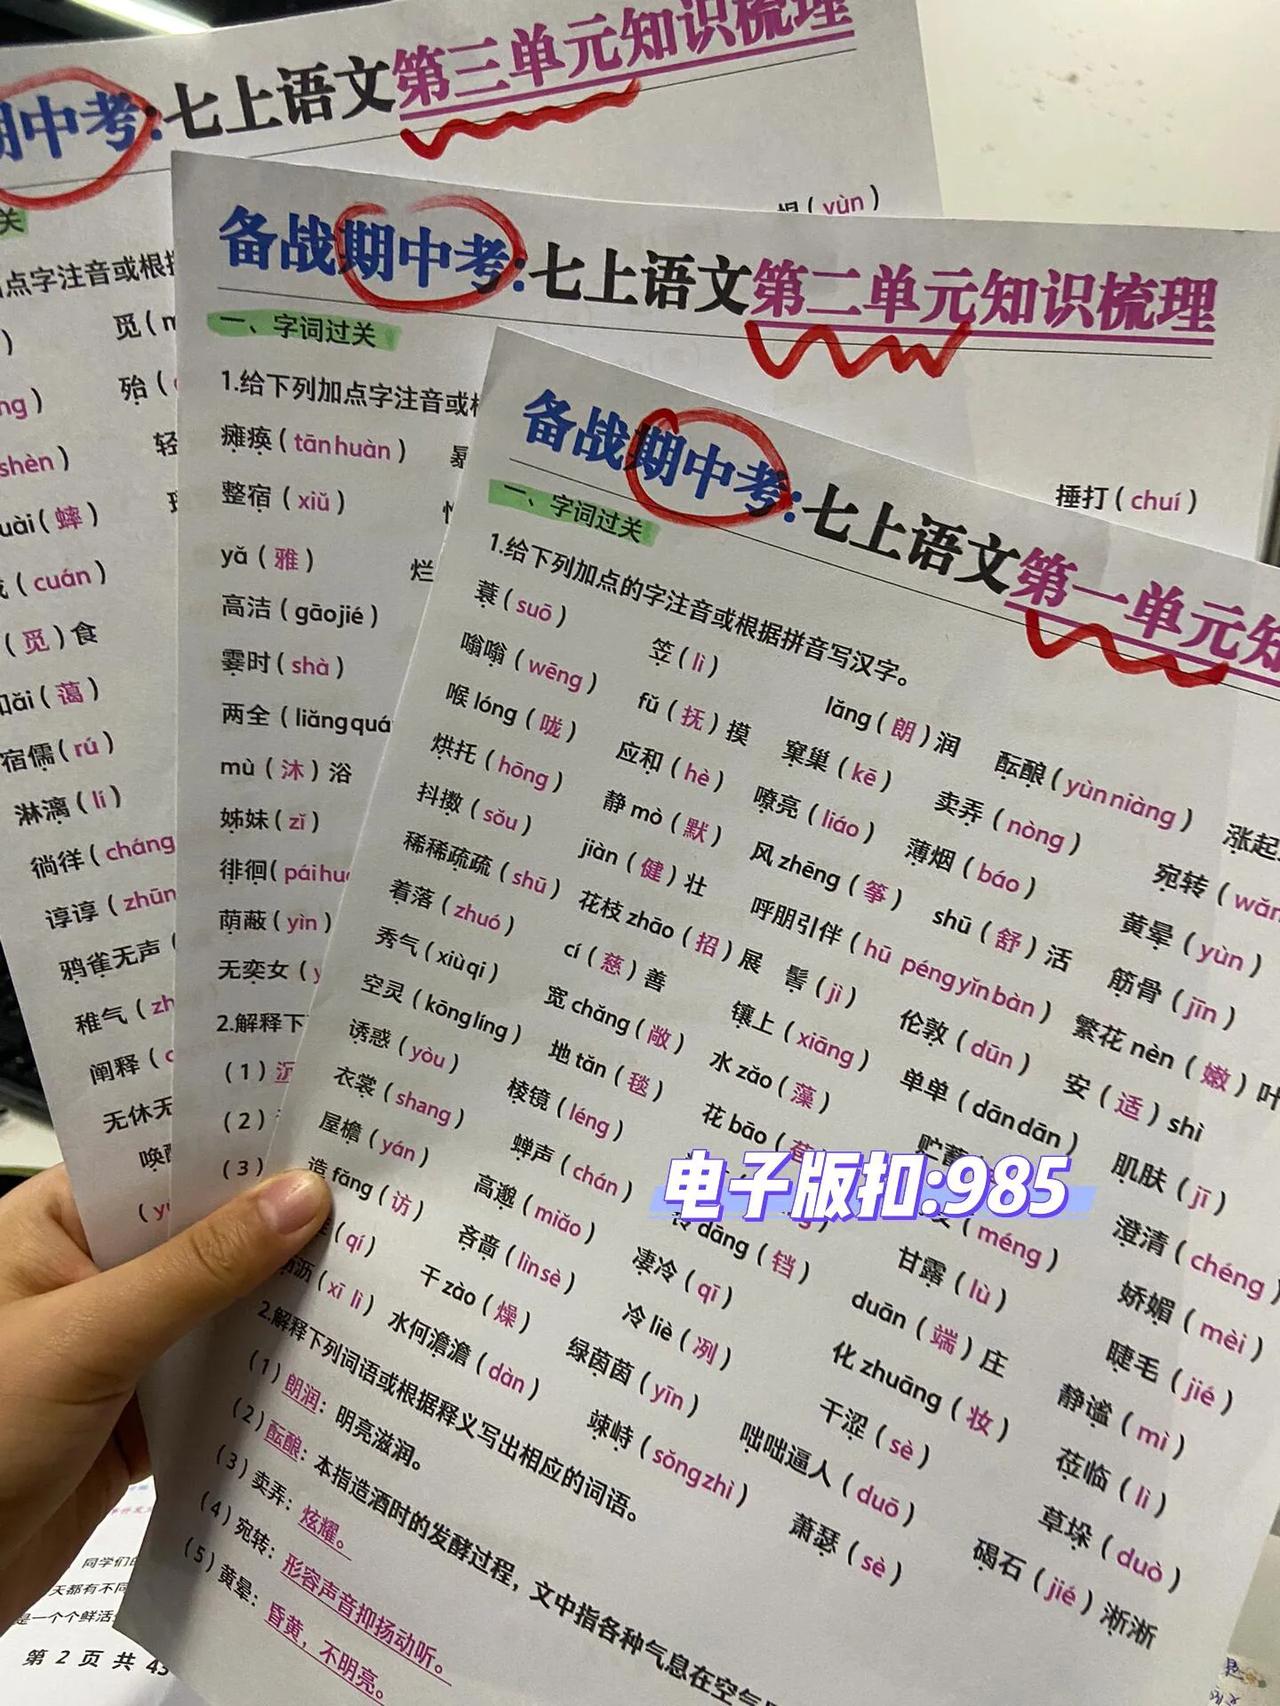 期中考:七上语文第三单元知识梳理
关
点字注音或根
(yùn)
觅(
殆(
ng)
轻
shèn)
uài(蟀)
(cuán)
(觅)食
ǎi(蔼)
宿儒(rú)
淋漓(lí)
徜徉(cháng
谆谆(zhūn
鸦雀无声(
稚气(zh
阐释(c
无休无
唤
备战期中考:七上语文第二单元知识梳理
一、字词过关
1.给下列加点字注音或
瘫痪(tān huàn)
捶打(chuí)
整宿(xiǔ)
yǎ(雅)
烂
高洁(gāo jié)
霎时(shà)
两全(liǎng quá
mù(沐)浴
姊妹(zǐ)
徘徊(pái hu
荫蔽(yìn)
无奕女(y
2.解释下
(1)沉
(2)
(3)
备战期中考:七上语文第一单元知
一、字词过关
1.给下列加点的字注音或根据拼音写汉字。
蓑(suō) 笠(lì) lǎng(朗)润 酝酿(yùn niàng) 涨起
嗡嗡(wēng) fǔ(抚)摸 窠巢(kē) 卖弄(nòng) 宛转(wǎn
喉lóng(咙) 应和(hè) 嘹亮(liáo) 薄烟(báo) 黄晕(yùn)
烘托(hōng) 静mò(默) 风zhēng(筝) shū(舒)活 筋骨(jīn)
抖擞(sǒu) jiàn(健)壮 呼朋引伴(hū péng yǐn bàn) 繁花nèn(嫩)叶
稀稀疏疏(shū) 花枝zhāo(招)展 髻(jì) 伦敦(dūn) 安(适)shì
着落(zhuó) cí(慈)善 镶上(xiāng) 单单(dān dān) 肌肤(jī)
秀气(xiù qi) 宽chǎng(敞) 水zǎo(藻) 贮蓄( 澄清(chéng)
空灵(kōng líng) 地tǎn(毯) 花bāo(苞) (méng) 娇媚(mèi)
诱惑(yòu) 棱镜(léng) 甘露(lù) 睫毛(jié)
衣裳(shang) 蝉声(chán) dāng(铛) duān(端)庄 静谧(mì)
屋檐(yán) 高邈(miǎo) 凄冷(qī) 化zhuāng(妆) 莅临(lì)
造fǎng(访) 吝啬(lìn sè) 冷liè(冽) 干涩(sè) 草垛(duò)
(qí) 干zào(燥) 绿茵茵(yīn) 咄咄逼人(duō) 碣石(jié)淅淅
沥(xī lì) 水何澹澹(dàn) 竦峙(sǒng zhì) 萧瑟(sè)
2.解释下列词语或根据释义写出相应的词语。
(1)朗润:明亮滋润。
(2)酝酿:本指造酒时的发酵过程,文中指各种气息在空气
(3)卖弄:炫耀。
(4)宛转:形容声音抑扬动听。
(5)黄晕:昏黄,不明亮。
电子版扣:985
同学们
天都有不同
是一个个鲜活
第 2 页 共 43